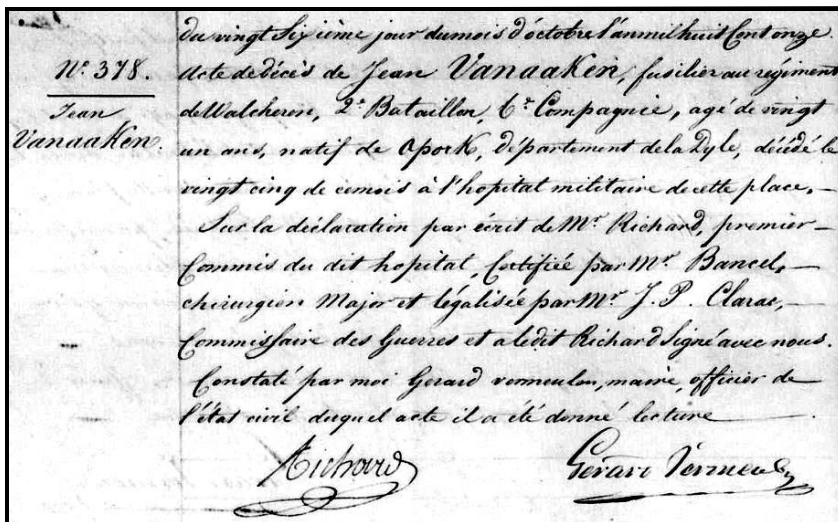 N.° 378.
Jean
Vanaaken.
du vingt Sixième jour du mois d'octobre l'an mil huit Cent onze
Acte de décès de Jean Vanaaken, fusilier au régiment
de Walcheren, 2.e Bataillon, 6.e Compagnie, agé de vingt
un ans, natif de opork, département de la Dyle, décédé le
vingt cinq de ce mois à l'hopital militaire de cette place,
Sur la déclaration par écrit de Mr. Richard, premier
Commis du dit hopital, Certifiée par Mr. Bancel,
chirurgien Major et légalisée par Mr. J. P. Clarac,
Commissaire des Guerres et a ledit Richard Signé avec nous.
Constaté par moi Gerard vermeulen, maire, officier de
l'état civil duquel acte il a été donné lecture
Richard
Gerard Vermeulen